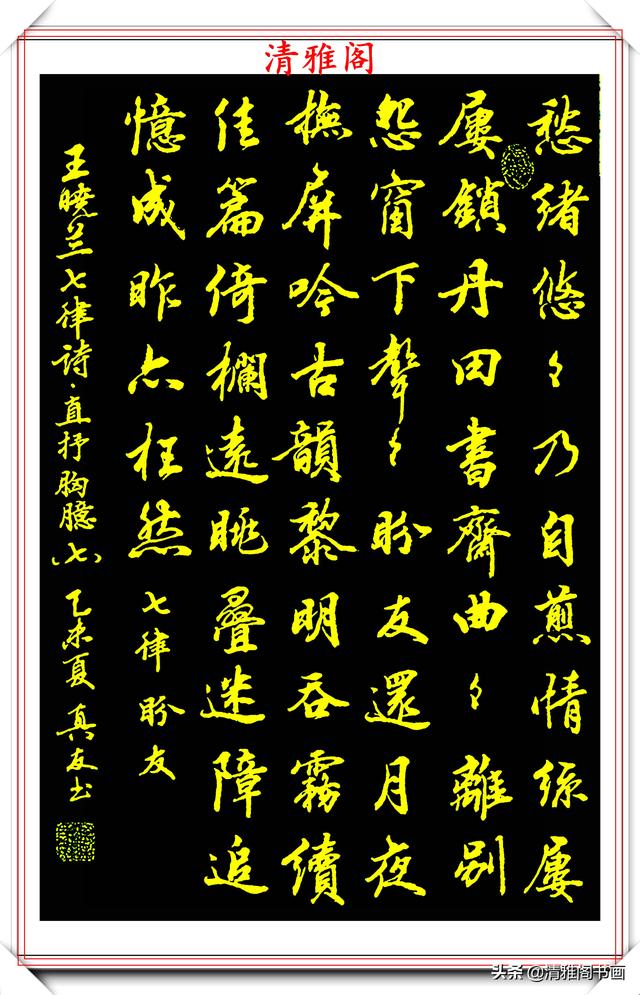 清雅阁
愁绪悠〻乃自煎情丝屡
屡鎖丹田書齋曲〻離别
怨窗下聲〻盼友還月夜
撫屏吟古韻黎明吞霧續
佳篇倚欄遠眺疊迷障追
憶成昨亦枉然
七律盼友
王曉兰七律诗·直抒胸臆(七)乙未夏真友书
头条@清雅阁书画